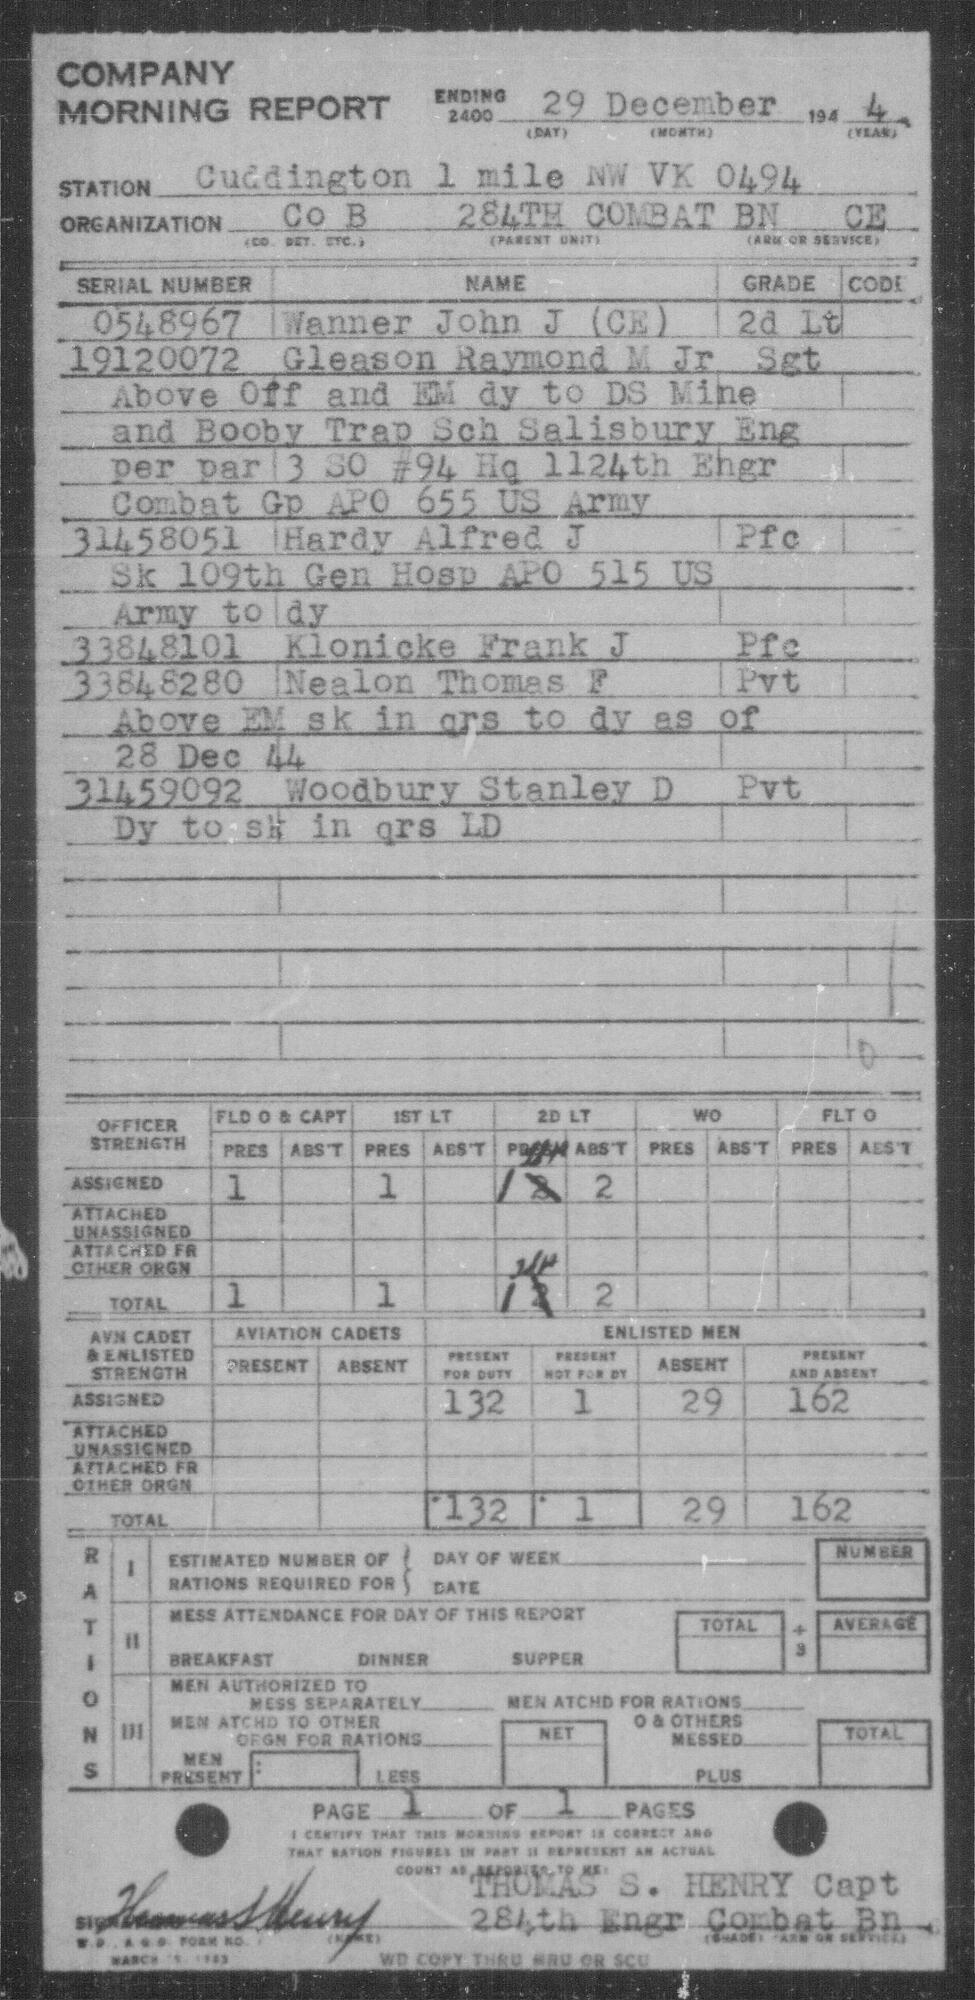 COMPANY
MORNING REPORT ENDING 2400 29 December 194 4
(DAY) (MONTH) (YEAR)
STATION Cuddington 1 mile NW VK 0494
ORGANIZATION Co B 284TH COMBAT BN CE
(CO. DET. ETC.) (PARENT UNIT) (ARM OR SERVICE)
SERIAL NUMBER NAME GRADE CODE
0548967 Wanner John J (CE) 2d Lt
19120072 Gleason Raymond M Jr Sgt
Above Off and EM dy to DS Mine
and Booby Trap Sch Salisbury Eng
per par 3 SO #94 Hq 1124th Engr
Combat Gp APO 655 US Army
31458051 Hardy Alfred J Pfc
Sk 109th Gen Hosp APO 515 US
Army to dy
33848101 Klonicke Frank J Pfc
33848280 Nealon Thomas F Pvt
Above EM sk in qrs to dy as of
28 Dec 44
31459092 Woodbury Stanley D Pvt
Dy to sk in qrs LD
OFFICER STRENGTH FLD O & CAPT 1ST LT 2D LT WO FLT O
PRES ABS'T PRES ABS'T PRES ABS'T PRES ABS'T PRES ABS'T
ASSIGNED 1 1 1 2
ATTACHED UNASSIGNED
ATTACHED FR OTHER ORGN
TOTAL 1 1 1 2
AVN CADET & ENLISTED STRENGTH AVIATION CADETS ENLISTED MEN
PRESENT ABSENT PRESENT FOR DUTY PRESENT NOT FOR DY ABSENT PRESENT AND ABSENT
ASSIGNED 132 1 29 162
ATTACHED UNASSIGNED
ATTACHED FR OTHER ORGN
TOTAL 132 1 29 162
RATIONS
I ESTIMATED NUMBER OF RATIONS REQUIRED FOR DAY OF WEEK DATE NUMBER
II MESS ATTENDANCE FOR DAY OF THIS REPORT TOTAL ÷ 3 AVERAGE
BREAKFAST DINNER SUPPER
III MEN AUTHORIZED TO MESS SEPARATELY MEN ATCHD FOR RATIONS
MEN ATCHD TO OTHER ORGN FOR RATIONS NET O & OTHERS MESSED TOTAL
MEN PRESENT LESS PLUS
PAGE 1 OF 1 PAGES
I CERTIFY THAT THIS MORNING REPORT IS CORRECT AND
THAT RATION FIGURES IN PART II REPRESENT AN ACTUAL
COUNT AS REPORTED TO ME:
THOMAS S. HENRY Capt
Thomas S Henry 284th Engr Combat Bn
(NAME) (GRADE) (ARM OR SERVICE)
W.D., A.G.O. FORM NO. 1
MARCH
WD COPY THRU MRU OR SCU